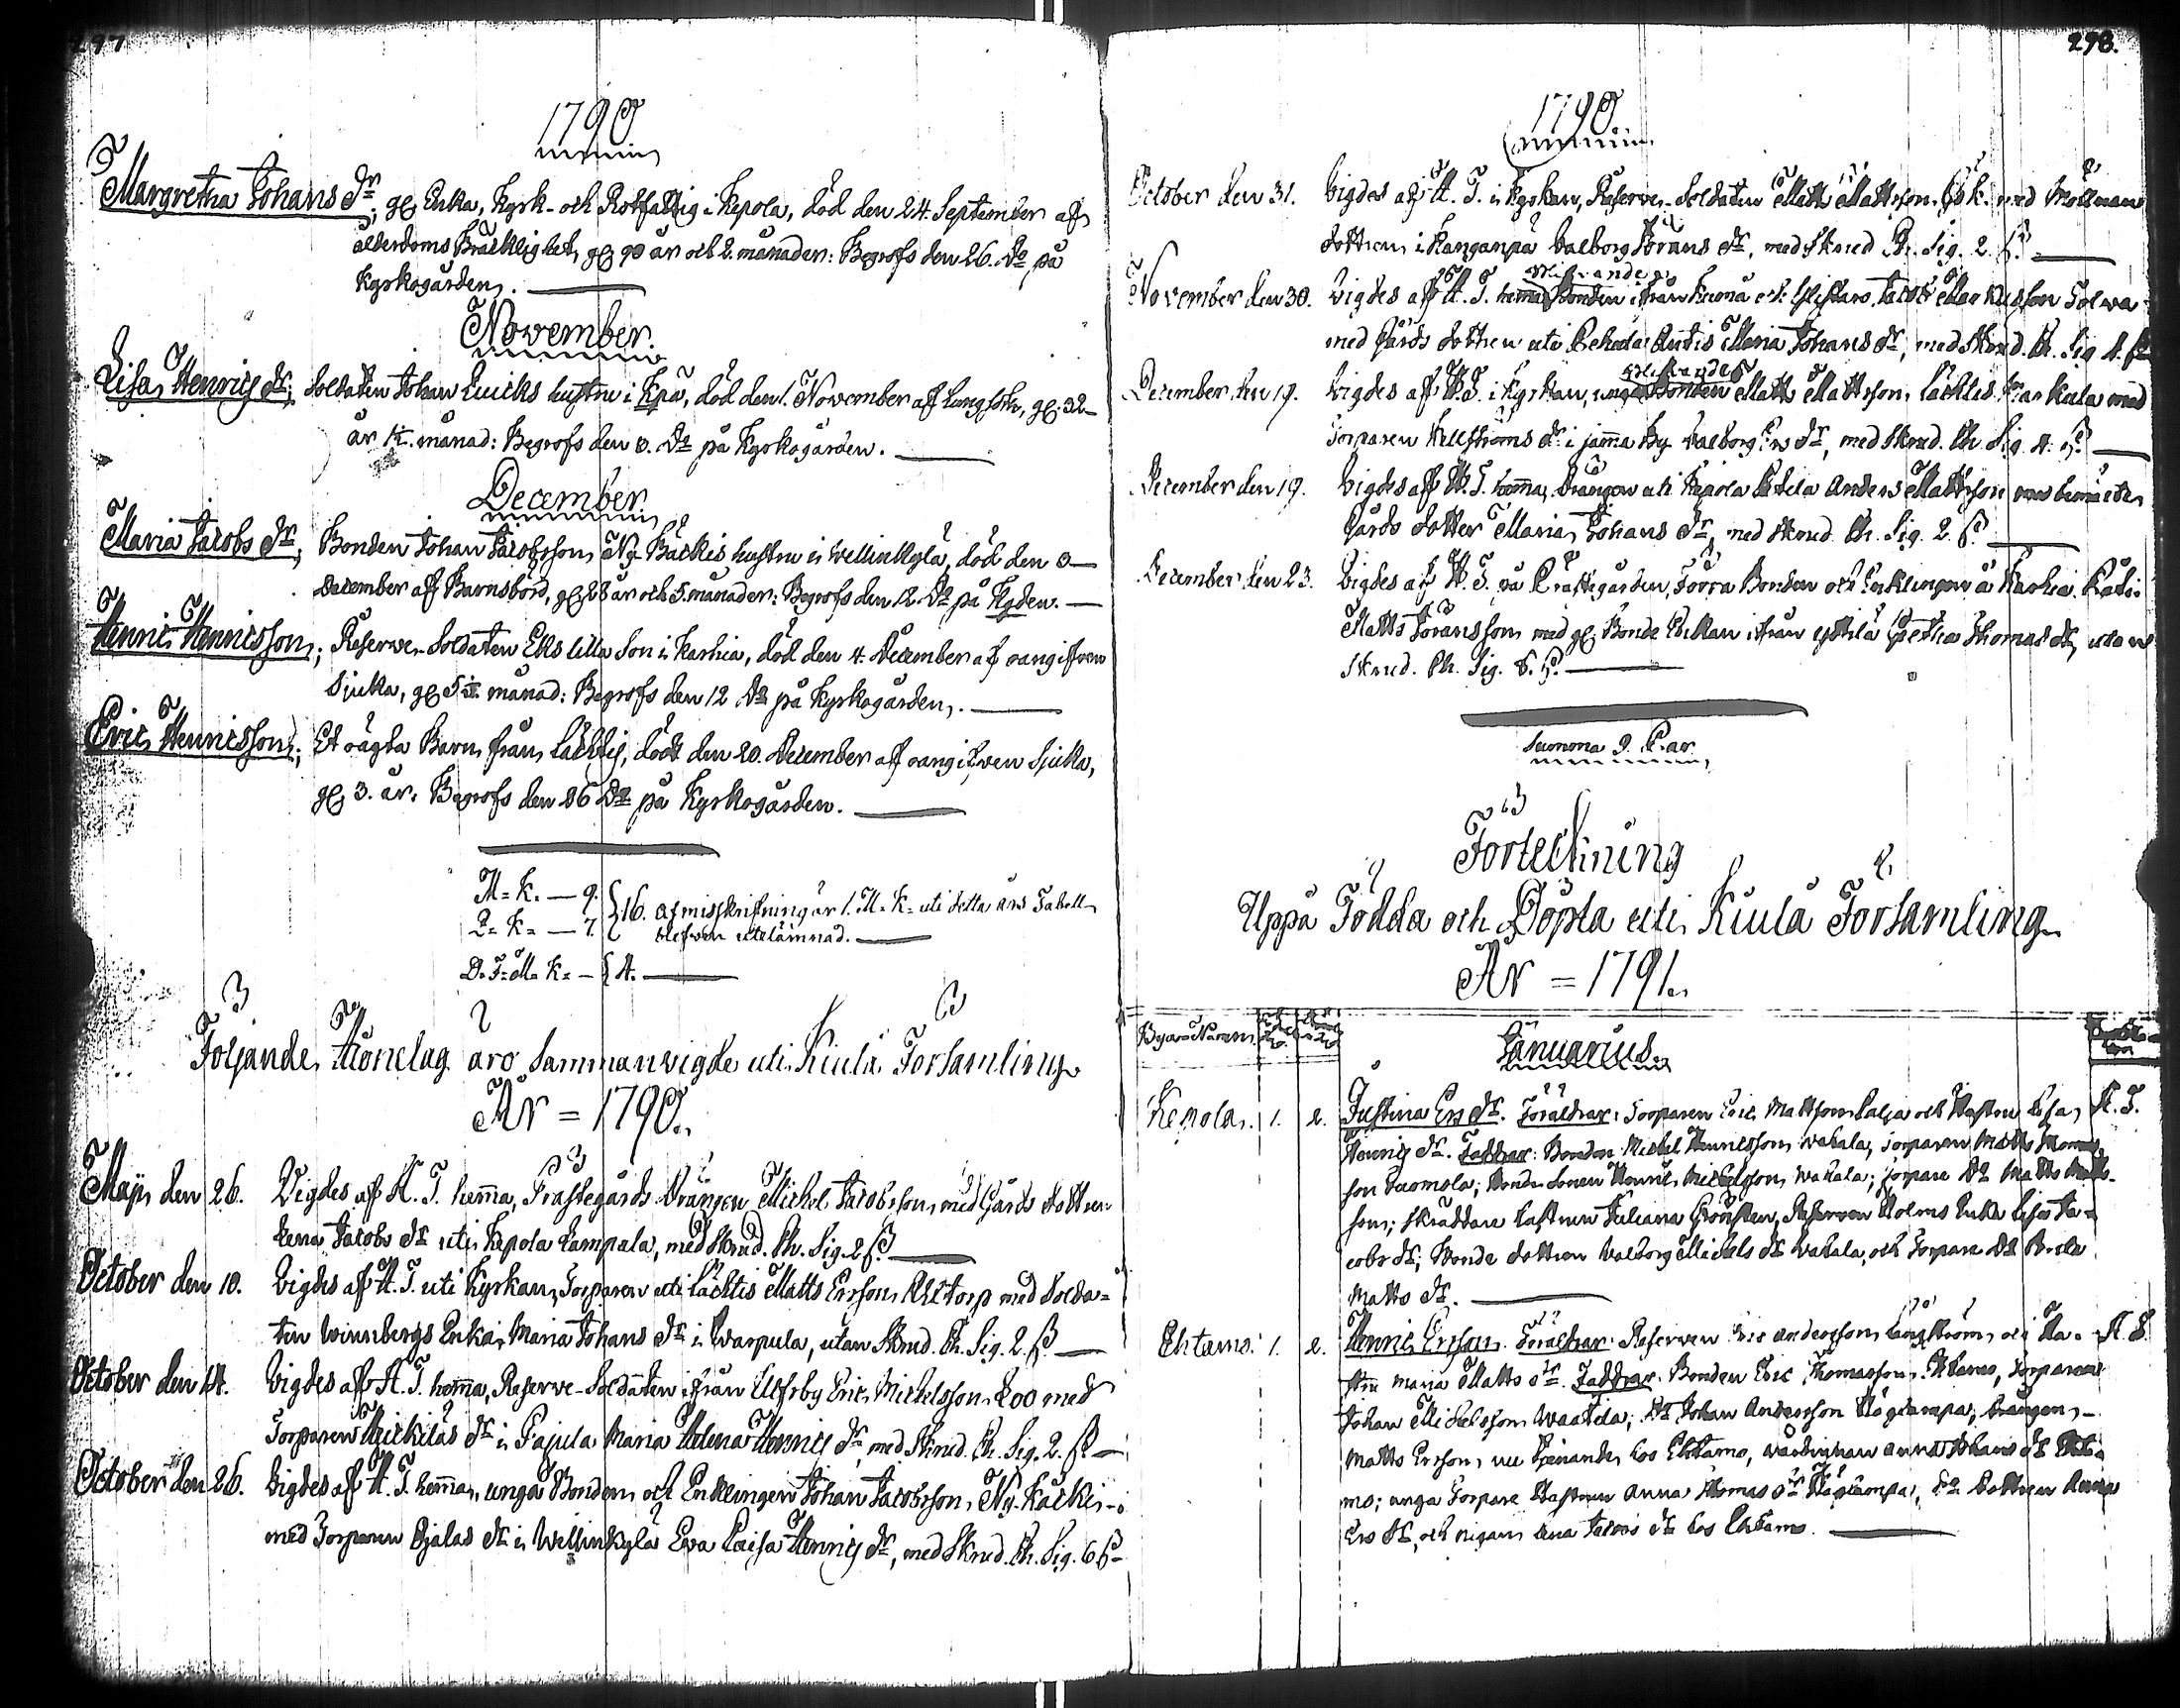 297
1790
Margretha Johans Dr; gl. Enka, Kyrk- och Rotfattig i Kepola, död den 24. September af
ålderdoms Bräcklighet, gl. 90 år och 2. månader: Begrofs den 26. Do på
Kyrkogården.
November.
Lisa Henrics Dr; Soldaten Johan Quicks hustru i Kpä, död den 1. November af Lungsot, gl. 32
år månad: Begrofs den Do på Kyrkogården.
December
Maria Jacobs Dr; Bonden Johan Jacobsson Ny-Käckis hustru i Wellinkylä, död den
December af Barnsbörd, gl. år och 5. månader: Begrofs den 12. Do på Kgden.
Henric Henricsson; Reserve-Soldaten Eks lilla Son i Karhia, död den 4. December af oangifven
Sjuka, gl. månad: Begrofs den 12 Do på Kyrkogården.
Eric Henricsson; Et oägta Barn från Lächtis, dödt den 20. December af oangifven Sjuka,
gl. 3. år. Begrofs den 26 Do på Kyrkogården.
M=K. — 9.
Q=K= — 7. 16. af misskrifning är 1. M=K= uti detta års Tabell
blefven utelämnad.
D.F=M=K= — 4.
Följande Hionelag äro Sammanvigde uti Kiula Församling
År = 1790.
Maji den 26. Vigdes af A. T. hemma, Prästegårds Drängen Michel Jacobsson med Gårds dottren
Lena Jacobs Dr uti Kepola Lampala, med Skrud. Ch. Sig. 2 ß
October den 10. Vigdes af A. T. uti Kyrkan, Torparen uti Lächtis Matts Ersson torp med Solda=
ten Winnbergs Enka Maria Johans Dr i Warpula, utan Skrud. Ch. Sig. 2. ß.
October den 14. Vigdes af A. T. hemma, Reserve-Soldaten ifrån Ulfsby Eric Michelsson Loo med
Torparen Mickiläs Dr i Pajula Maria Helena Henrics Dr, med Skrud. Ch. Sig. 2. ß
October den 26. Vigdes af A. T. hemma, unga Bonden och Enklingen Johan Jacobsson Ny-Käckis
med Torparen Ojalas Dr i Wellinkylä Eva Caisa Henrics Dr, med Skrud. Ch. Sig. 6 ß
298.
1790.
October den 31. Vigdes af A. T. i Kyrkan, Reserve-Soldaten Matts Mattsson med Möllnare
dottren i Kanganpä Valborg Jörans Dr, med Skrud Ch. Sig. 2. ß.
blifvande
November den 30. Vigdes af A. T. hemma Bonden ifrån Eurnå Jacob Markusson Tolva
med Gårds dottren uti Pehula Antis Maria Johans Dr, med Skrud. Ch. Sig. 4. ß
blifvande
December den 19. Vigdes af A. T. i Kyrkan, unga Bonden Matts Mattsson Lächtis med
Torparen Kellströms Dr i samma By Valborg Ers Dr, med Skrud. Ch. Sig. 4. ß.
December den 19. Vigdes af A. T. hemma, Drängen uti Kepola Anders Mattsson
Gårds dotter Maria Johans Dr, med Skrud. Ch. Sig. 2. ß.
December den 23. Vigdes af A. T. på Prästegården, Förra Bonden och Enklingen å Karhia
Matts Jöransson med gl. Bonde Enkan ifrån Thomas Dr, utan
Skrud. Ch. Sig. 6. ß.
Summa 9. Par.
Förteckning
Uppå Födda och Döpta uti Kiula Församling
År = 1791.
Byars Namn
Januarius.
Kepola. 1. 2. Justina Ers Dr. Föräldrar: Torparen Eric Mattsson och Hustru Lisa A. T.
Henrics Dr. Faddrar: Bonden Michel Henricsson Wahala, Torparen Matts Thomas-
son Tuomola; Bonde Sonen Henric Michelsson Wahala; Torpare Do Matts Matts-
son; Skräddare Hustrun Juliana Grönsten, Reserven Holms Enka Lisa Ja-
cobs Dr; Bonde dottren Valborg Michels Dr Wahala, och Torpare Do
Matts Dr.
Ehtamo. 1. 2. Henric Ersson. Föräldrar: Reserven Eric Andersson Långström och Hu= A. T.
stru Maria Matts Dr. Faddrar: Bonden Eric Thomasson Ehtamo, Torparen
Johan Michelsson Waatela; Do Johan Andersson Högiampa, Drängen
Matts Ersson, nu tjenande hos Ehtamo, Anna Johans Dr Ehta=
mo; unga Torpare Hustrun Anna Thomas Dr Högiampa, Do dottren Anna
Ers Dr, och Pigan Lena Jacobs Dr hos Ehtamo.